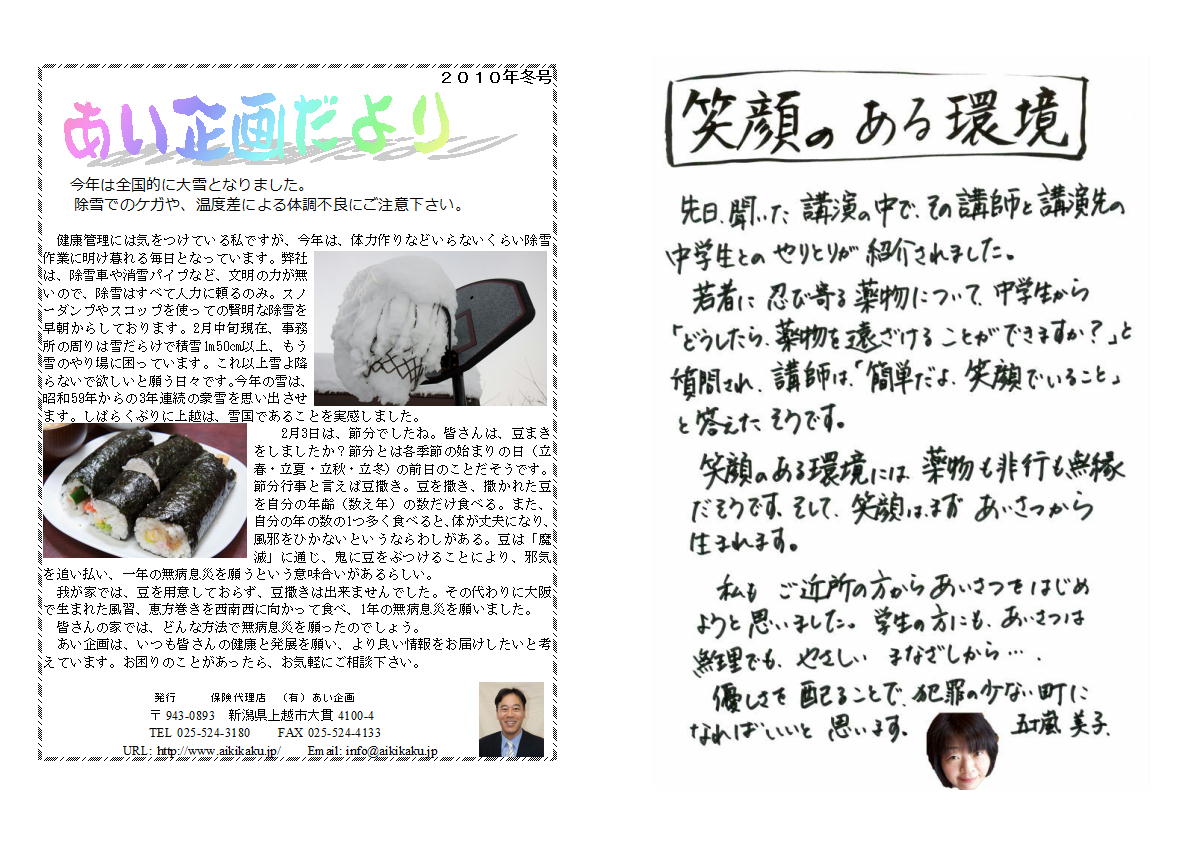 2010年冬号
あい企画だより
今年は全国的に大雪となりました。
除雪でのケガや、温度差による体調不良にご注意下さい。
健康管理には気をつけている私ですが、今年は、体力作りなどいらないくらい除雪
作業に明け暮れる毎日となっています。弊社
は、除雪車や消雪パイプなど、文明の力が無
いので、除雪はすべて人力に頼るのみ。スノ
ーダンプやスコップを使っての賢明な除雪を
早朝からしております。2月中旬現在、事務
所の周りは雪だらけで積雪1m50cm以上、もう
雪のやり場に困っています。これ以上雪よ降
らないで欲しいと願う日々です。今年の雪は、
昭和59年からの3年連続の豪雪を思い出させ
ます。しばらくぶりに上越は、雪国であることを実感しました。
2月3日は、節分でしたね。皆さんは、豆まき
をしましたか？節分とは各季節の始まりの日（立
春・立夏・立秋・立冬）の前日のことだそうです。
節分行事と言えば豆撒き。豆を撒き、撒かれた豆
を自分の年齢（数え年）の数だけ食べる。また、
自分の年の数の1つ多く食べると、体が丈夫になり、
風邪をひかないというならわしがある。豆は「魔
滅」に通じ、鬼に豆をぶつけることにより、邪気
を追い払い、一年の無病息災を願うという意味合いがあるらしい。
我が家では、豆を用意しておらず、豆撒きは出来ませんでした。その代わりに大阪
で生まれた風習、恵方巻きを西南西に向かって食べ、1年の無病息災を願いました。
皆さんの家では、どんな方法で無病息災を願ったのでしょう。
あい企画は、いつも皆さんの健康と発展を願い、より良い情報をお届けしたいと考
えています。お困りのことがあったら、お気軽にご相談下さい。
発行　保険代理店　（有）あい企画
〒943-0893　新潟県上越市大貫4100-4
TEL 025-524-3180　FAX 025-524-4133
URL: http://www.aikikaku.jp/　Email: info@aikikaku.jp
笑顔のある環境
先日、聞いた講演の中で、その講師と講演先の
中学生とのやりとりが紹介されました。
若者に忍び寄る薬物について、中学生から
「どうしたら、薬物を遠ざけることができますか？」と
質問され、講師は、「簡単だよ、笑顔でいること」
と答えたそうです。
笑顔のある環境には薬物も非行も無縁
だそうです。そして、笑顔は、まずあいさつから
生まれます。
私も ご近所の方からあいさつをはじめ
ようと思いました。学生の方にも、あいさつは
無理でも、やさしいまなざしから…．
優しさを配ることで、犯罪の少ない町に
なればいいと思います。
五十嵐 美子